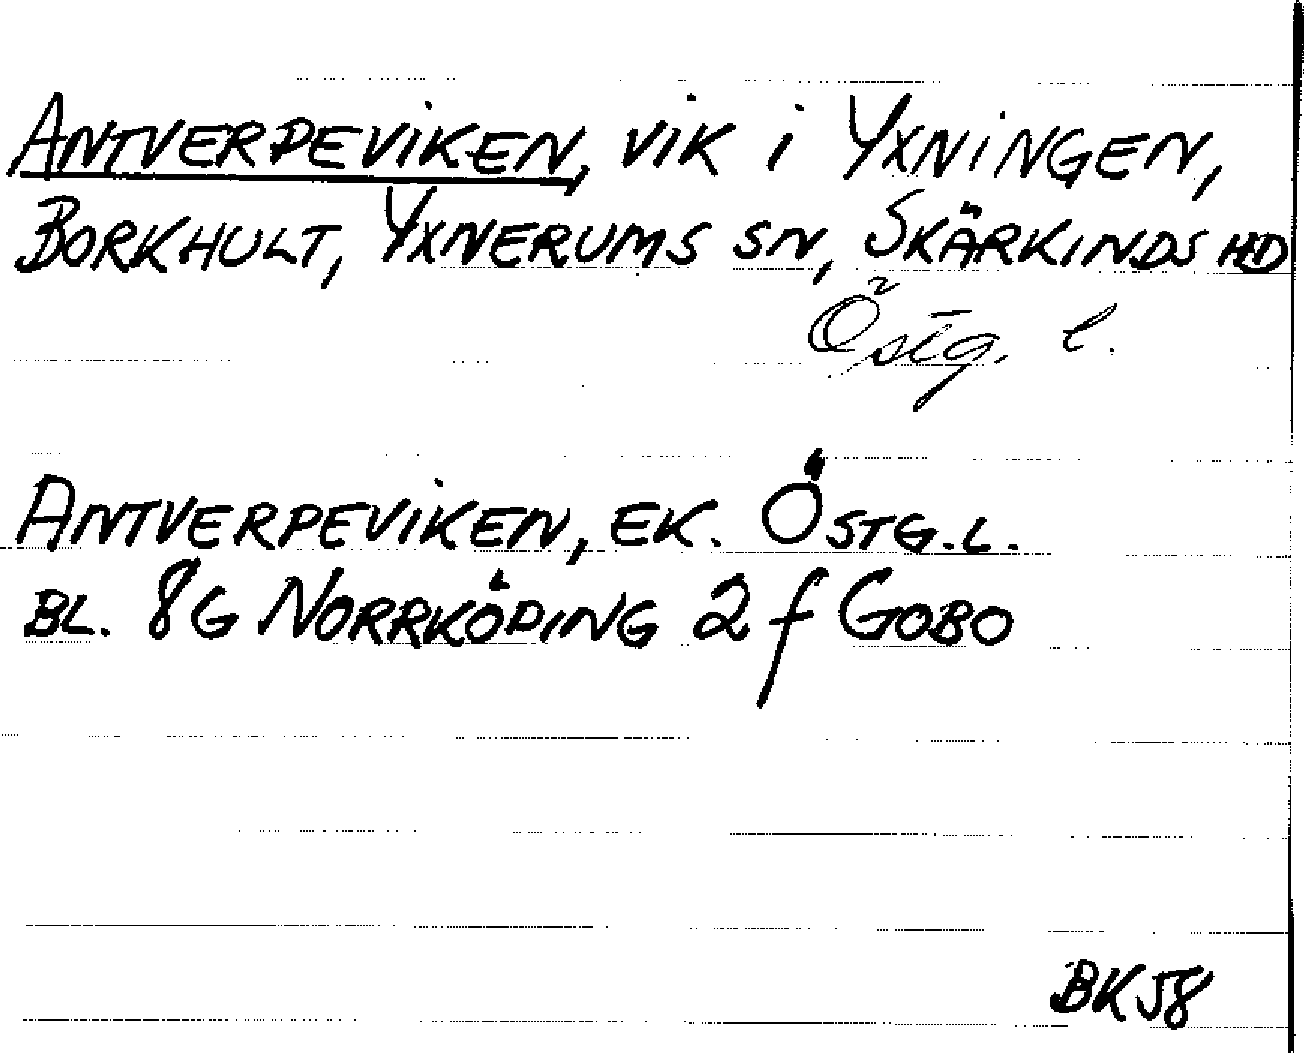 ANTVERPEVIKEN, VIK i YXNINGEN,
BORKHULT, YXNERUMS SN, SKÄRKINDS HD
Östg. l.
ANTVERPEVIKEN, EK. ÖSTG.L.
BL. 8G NORRKÖPING 2f GOBO
BK58